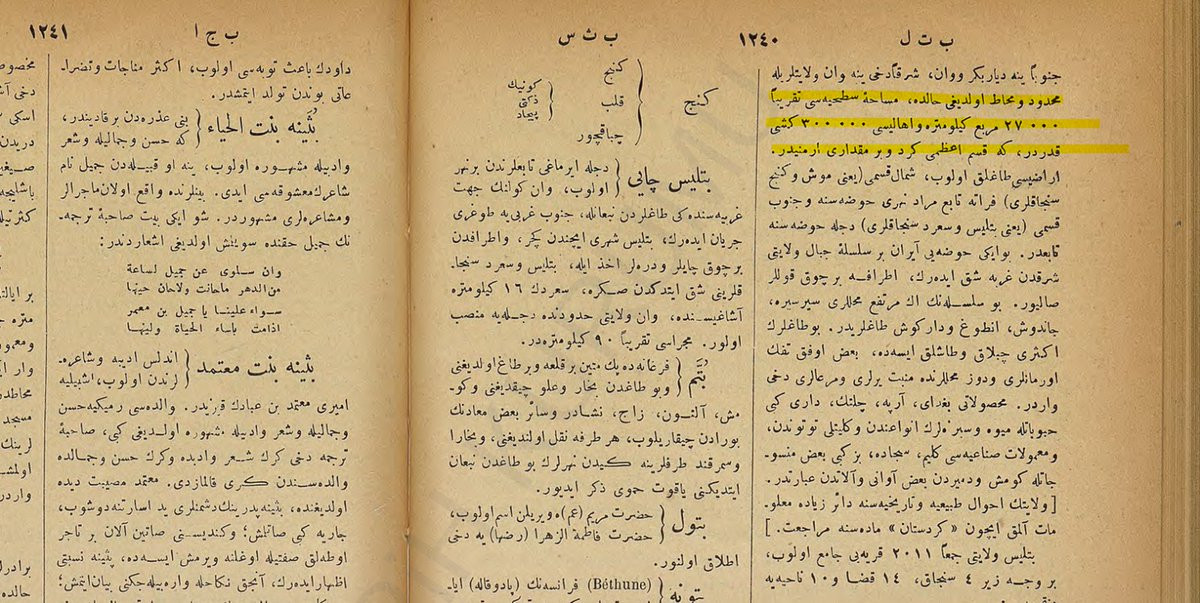 ب ت ل
١٢٤٠
ب ث س
جنوباً ینه دیاربکر ووان، شرقاًدخی ینه وان ولایتلریله
محدود ومحاط اولدیغی حالده، مساحهٔ سطحیه‌سی تقریباً
٢٧٠٠٠ مربع کیلومتره واهالیسی ٣٠٠٠٠٠ کشی
قدردر، که قسم اعظمی کرد وبر مقداری ارمنیدر.
اراضیسی طاغلق اولوب، شمال قسمی (یعنی موش وکنج
سنجاقلری) فراته تابع مراد نهری حوضه‌سنه وجنوب
قسمی (یعنی بتلیس وسعرد سنجاقلری) دجله حوضه‌سنه
تابعدر. بوایکی حوضه‌یی آیران بر سلسلهٔ جبال ولایتی
شرقدن غربه شق ایده‌رك، اطرافه برچوق قوللر
صالیور. بو سلسله‌نك اك مرتفع محللری سیرسیره،
جاندوش، انطوغ ودارکوش طاغلریدر. بوطاغلرك
اکثری چبلاق وطاشلق ایسه‌ده، بعض اوفق تفك
اورمانلری ودوز محللرنده منبت یرلری ومرعالری دخی
واردر. محصولاتی بغدای، آرپه، چلتك، داری کبی
حبوباتله میوه وسبزه‌لرك انواعندن وکلیتلی توتوندن،
ومعمولات صناعیه‌سی کلیم، سجاده، بز کبی بعض منسو-
جاتله کومش ودمیردن بعض آوانی وآلاتدن عبارتدر.
[ولایتك احوال طبیعیه وتاریخیه‌سنه دائر زیاده معلو-
مات آلمق ایچون «کردستان» ماده‌سنه مراجعت.]
بتلیس ولایتی جمعاً ٢٠١١ قریه‌یی جامع اولوب،
بر وجه زیر ٤ سنجاق، ١٤ قضا و ١٠ ناحیه‌یه
کنج
کنج
قلب
چباقچور
کونیك
ذکتی
پیچاد
بتلیس چایی
دجله ایرماغی تابعلرندن برنهر
اولوب، وان کولنك جهت
غربیه‌سنده کی طاغلردن نبعانله، جنوب غربی‌یه طوغری
جریان ایده‌رك، بتلیس شهری ایچندن کچر، واطرافدن
برچوق چایلر ودره‌لر اخذ ایله، بتلیس وسعرد سنجا-
قلرینی شق ایتدکدن صکره، سعردك ١٦ کیلومتره
آشاغیسنده، وان ولایتی حدودنده دجله‌یه منصب
اولور. مجراسی تقریباً ٩٠ کیلومتره‌در.
بُتَّم
فرغانه‌ده پك متین بر قلعه وبر طاغ اولدیغنی
وبو طاغدن بخار وعلو چیقدیغنی وکو-
مش، آلتون، زاج، نشادر وسائر بعض معادنك
بورادن چیقاریلوب، هر طرفه نقل اولندیغنی، وبخارا
وسمرقند طرفلرینه کیدن نهرلرك بوطاغدن نبعان
ایتدیکنی یاقوت حموی ذکر ایدیور.
بتول
حضرت مریم (عم)ه ویریلن اسم اولوب،
حضرت فاطمة الزهرا (رضها)یه دخی
اطلاق اولنور.
بتونه
(Béthune) فرانسه‌نك (پادوقاله) ایا-
ب ج ا
١٢٤١
داودك باعث توبه‌سی اولوب، اکثر مناجات وتضرا-
عاتی بوندن تولد ایتمشدر.
بُثینه بنت الحیاء
بنی عذره‌دن بر قادیندر،
که حسن وجمالیله وشعر
وادبیله مشهوره اولوب، ینه او قبیله‌دن جمیل نام
شاعرك معشوقه‌سی ایدی. بینلرنده واقع اولان ماجرالر
ومشاعره‌لری مشهوردر. شو ایکی بیت صاحبهٔ ترجمه-
نك جمیل حقنده سویلمش اولدیغی اشعارندندر:
وان سلوی عن جمیل لساعة
من الدهر ماحانت ولاحان حینها
سواء علینا یا جمیل بن معمر
اذامت بأساء الحیاة ولینها
بثینه بنت معتمد
اندلس ادیبه وشاعره-
لرندن اولوب، اشبیلیه
امیری معتمد بن عبادك قزیدر. والده‌سی رمیکیه حسن
وجمالیله وشعر وادبیله مشهوره اولدیغی کبی، صاحبهٔ
ترجمه دخی کرك شعر وادبده وکرك حسن وجمالده
والده‌سندن کری قالمازدی. معتمد مصیبت دیده
اولدیغنده، بثینه پدرینك دشمنلری ید اسارتنه دوشوب،
جاریه کبی صاتلمش؛ وکندیسنی صاتین آلان بر تاجر
اوطه‌لق صفتیله اوغلنه ویرمش ایسه‌ده، بثینه نسبتی
اظهار ایده‌رك، آنجق نکاحله واره‌بیله‌جکنی بیان ایتمش؛
مخصوص
دخی آت
اسکی
دریدن
صیغیر
پاشایجه
کثرتیله
بر ایالت
متره
ومعمو
وار
محاطد
مسجد
لرینك
اولمشـ
واردر
برادر
حالده